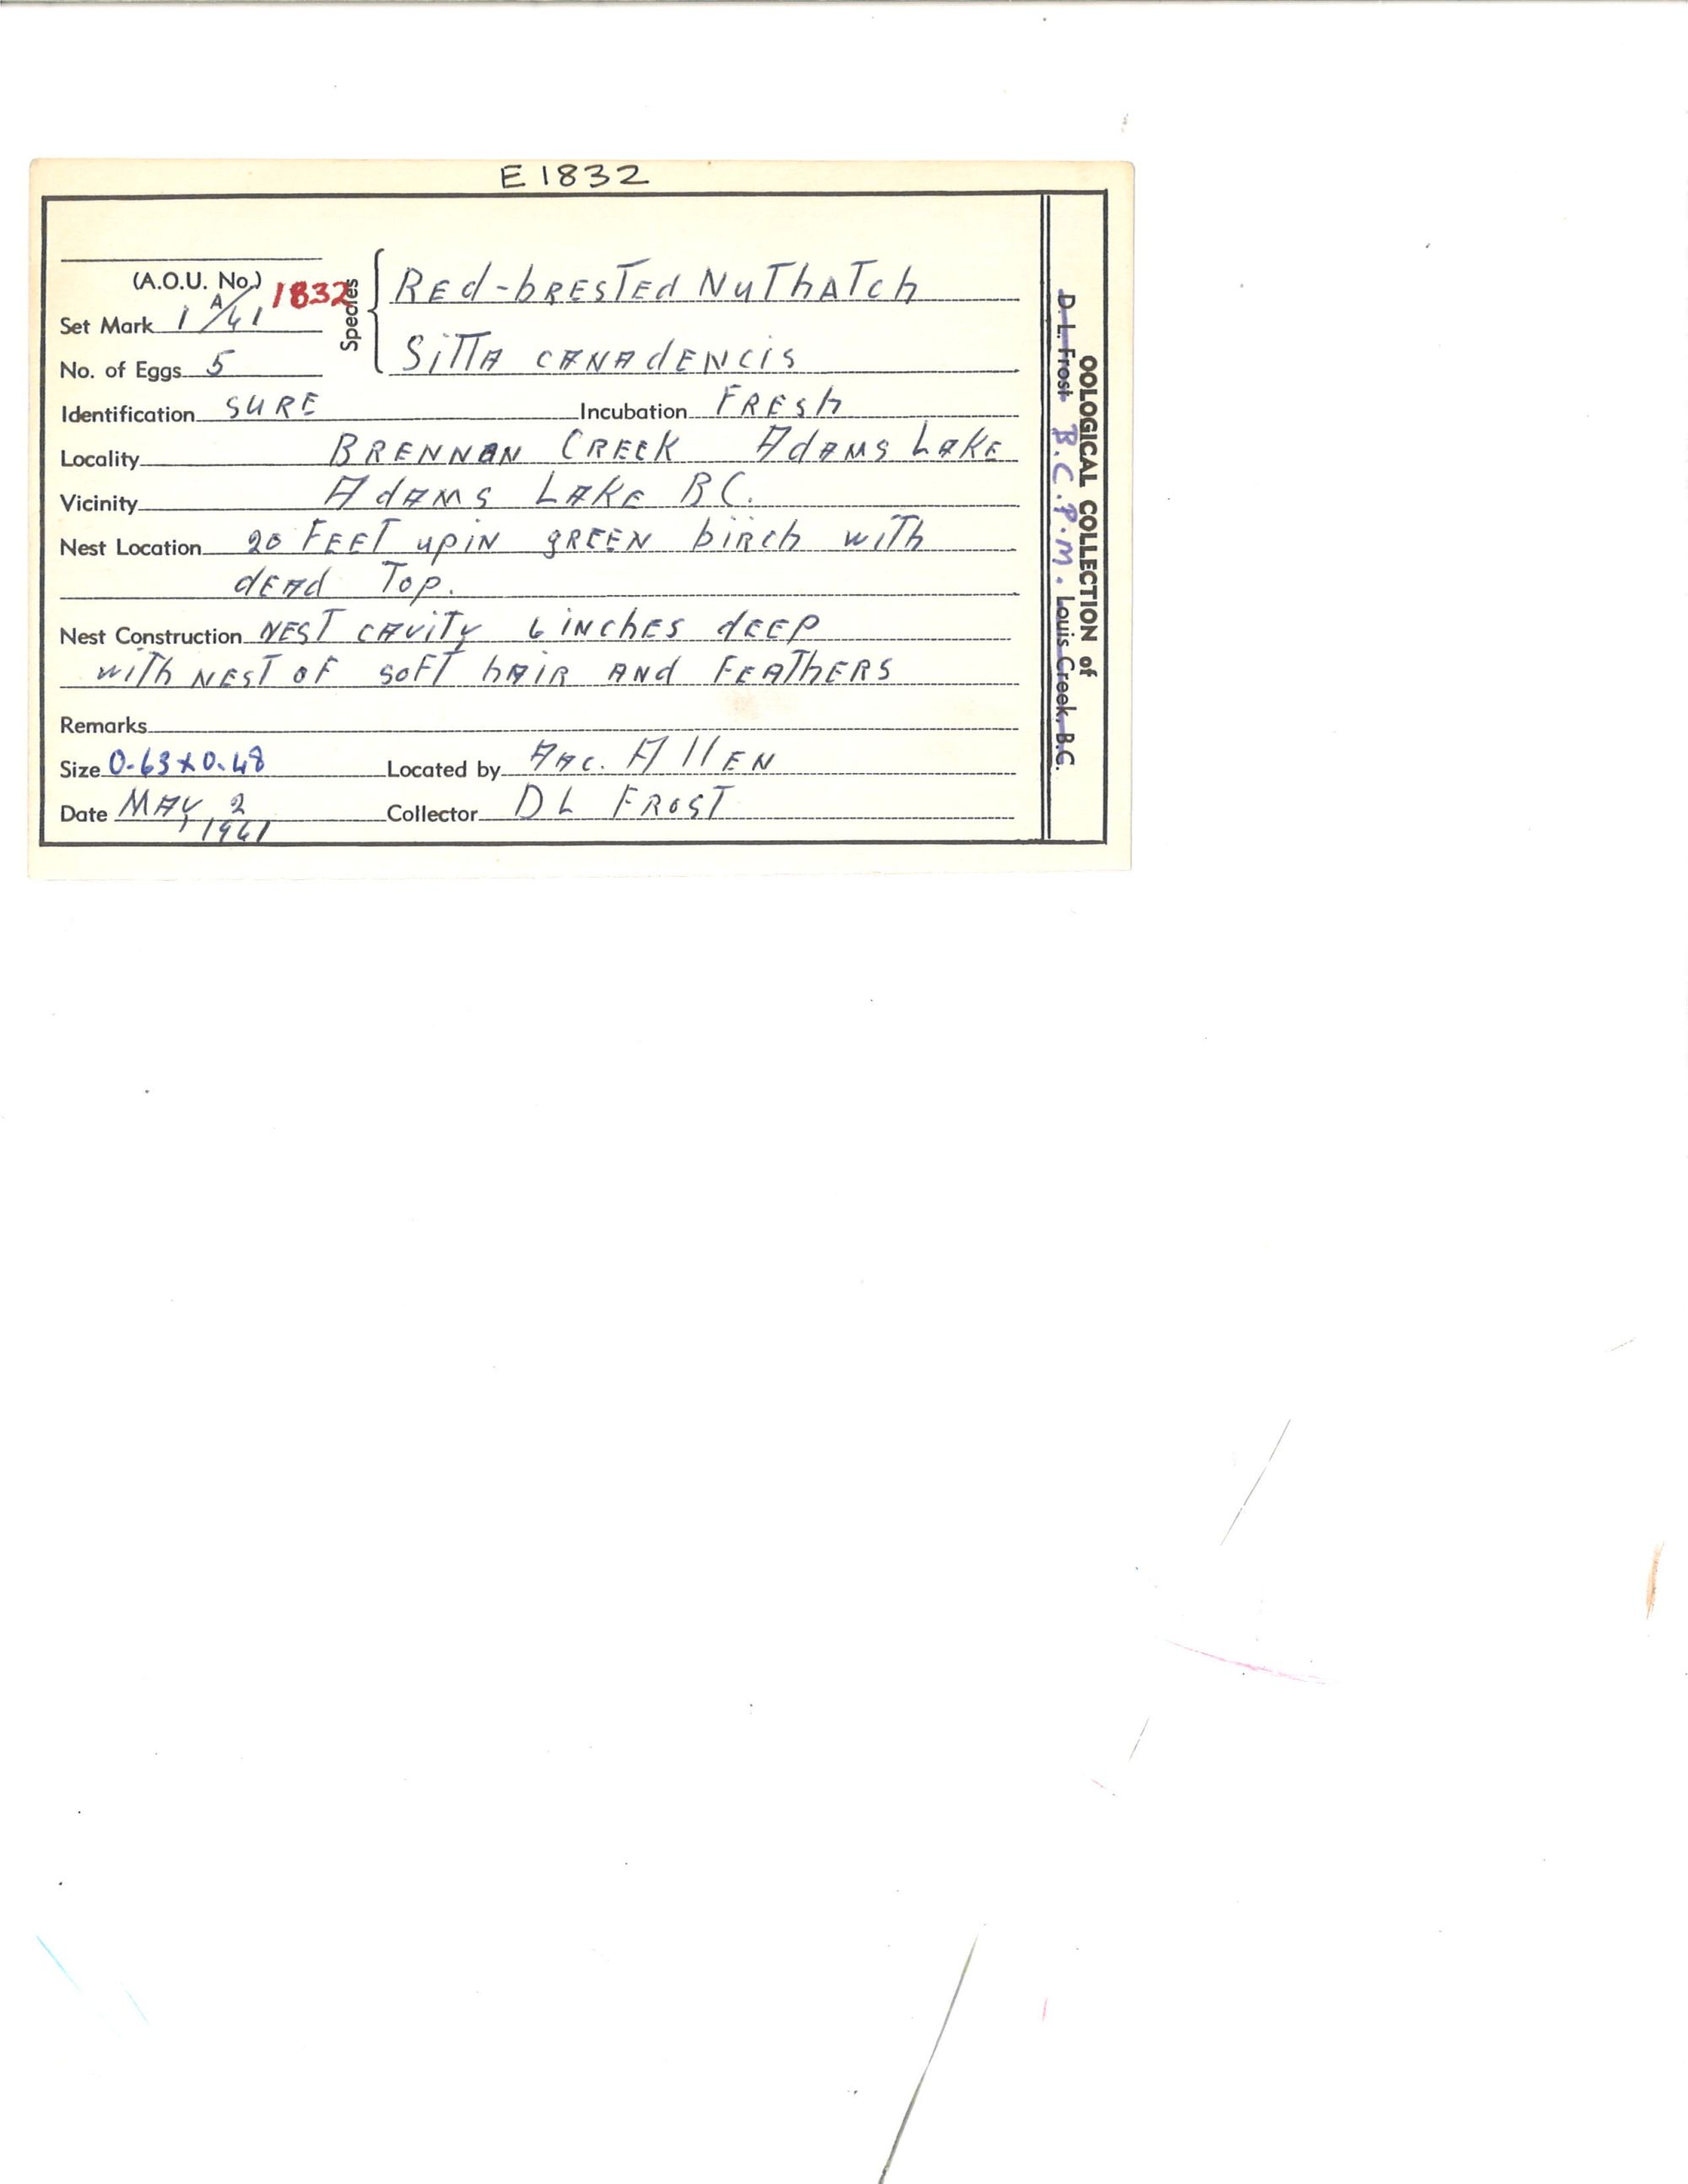 E 1832
(A.O.U. No.) 1832
Species { Red-brested Nuthatch
Set Mark 1 A/41
Sitta canadencis
No. of Eggs 5
Identification SURE Incubation FRESH
Locality BRENNAN CREEK Adams Lake
Vicinity Adams Lake B C.
Nest Location 20 FEET up in green birch with
dead Top.
Nest Construction NEST cavity 6 inches deep
with NEST of soft hair and feathers
Remarks
Size 0.63 x 0.48 Located by Allen
Date May 2, Collector D L Frost
OOLOGICAL COLLECTION of
D. L. Frost B.C.P.M. Louis Creek, B.C.